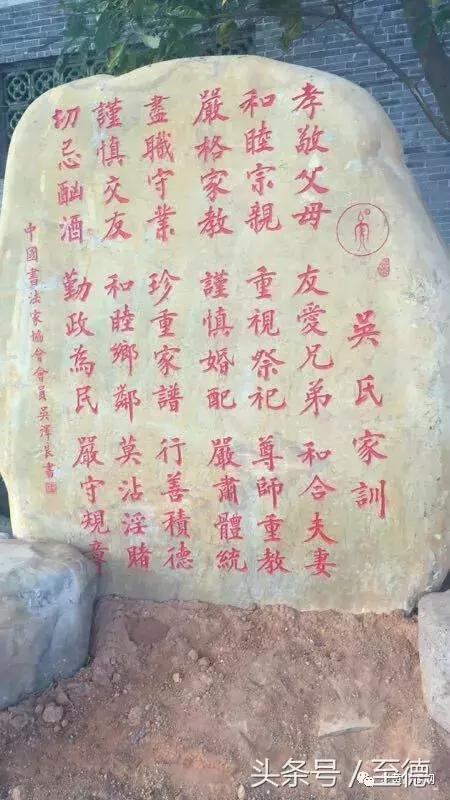 吳氏家訓
孝敬父母 友愛兄弟 和合夫妻
和睦宗親 重視祭祀 尊師重教
嚴格家教 謹慎婚配 嚴肅體統
盡職守業 珍重家譜 行善積德
謹慎交友 和睦鄉鄰 莫沾淫賭
切忌酗酒 勤政為民 嚴守規章
中國書法家協會會員吳澤長書
头条号／至德